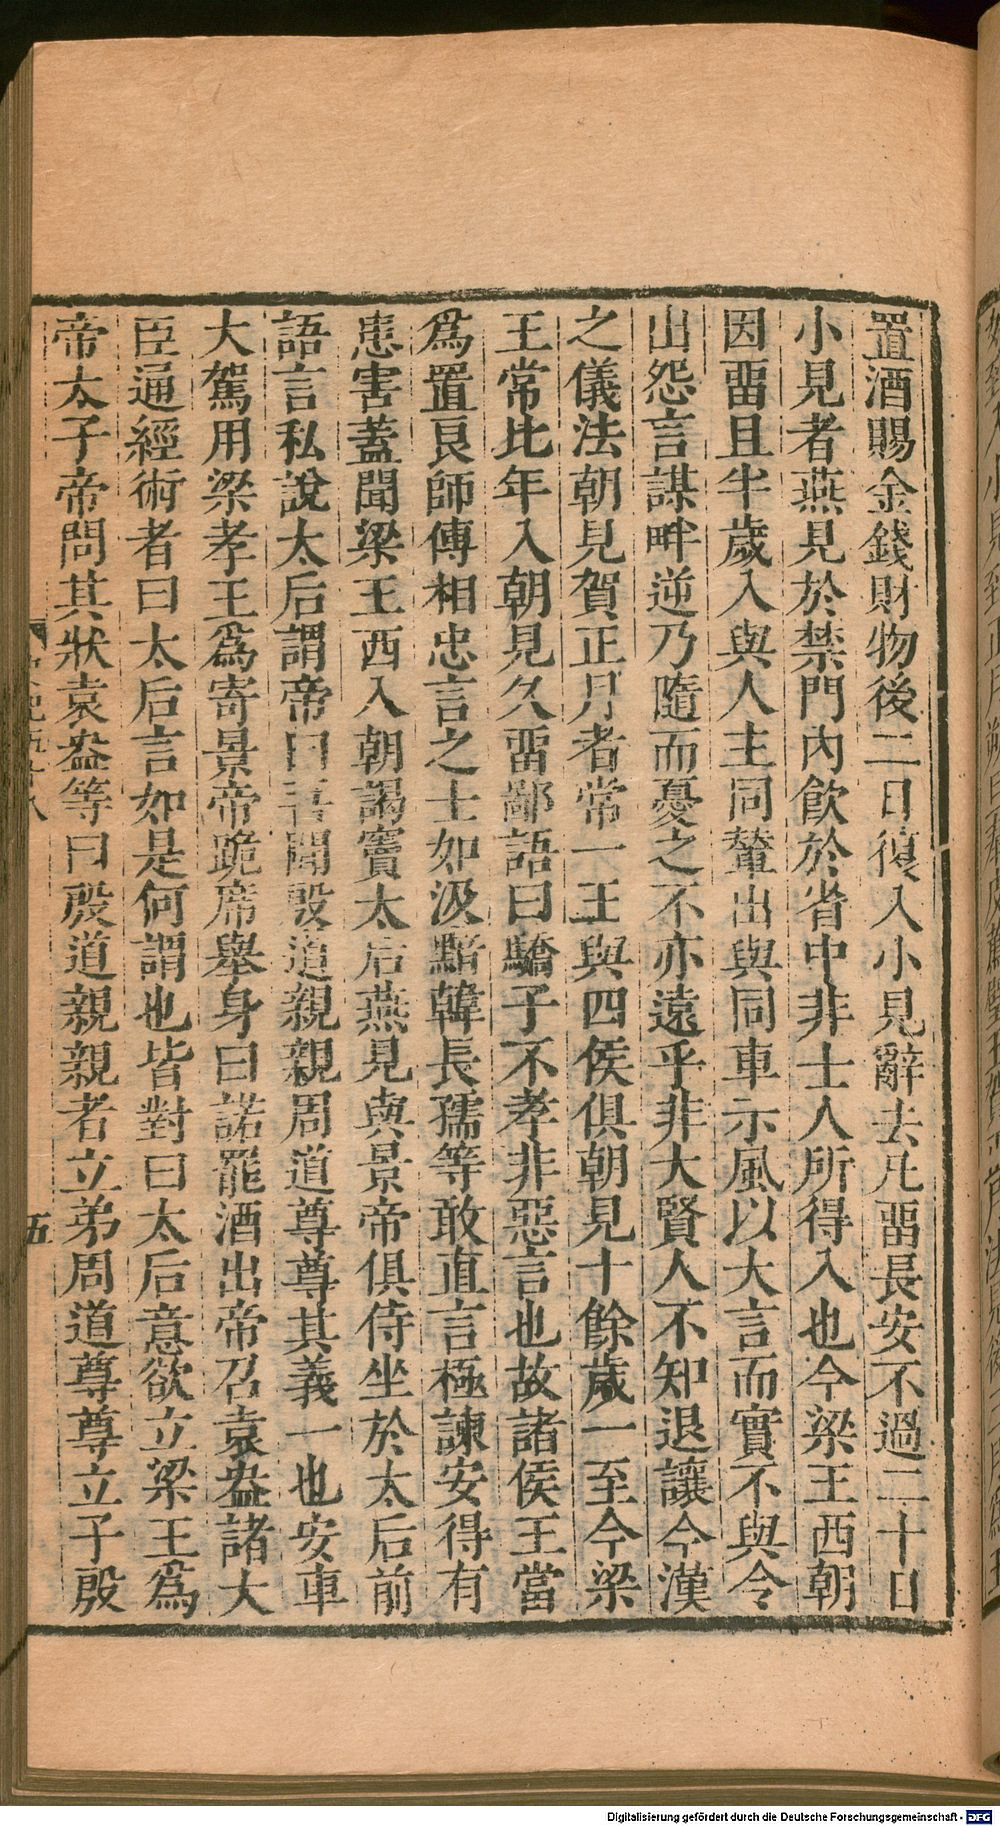 置酒賜金錢財物後二日復入小見辭去凡畱長安不過二十日
小見者燕見於禁門內飮於省中非士人所得入也今梁王西朝
因畱且半歲入與人主同輦出與同車示風以大言而實不與令
出怨言謀畔逆乃隨而憂之不亦遠乎非大賢人不知退讓今漢
之儀法朝見賀正月者常一王與四侯俱朝見十餘歲一至今梁
王常比年入朝見久畱鄙語曰驕子不孝非惡言也故諸侯王當
爲置良師傅相忠言之士如汲黯韓長孺等敢直言極諫安得有
患害蓋聞梁王西入朝謁竇太后燕見與景帝俱侍坐於太后前
語言私說太后謂帝曰吾聞殷道親親周道尊尊其義一也安車
大駕用梁孝王爲寄景帝跪席舉身曰諾罷酒出帝召袁盎諸大
臣通經術者曰太后言如是何謂也皆對曰太后意欲立梁王爲
帝太子帝問其狀袁盎等曰殷道親親者立弟周道尊尊立子殷
五
Digitalisierung gefördert durch die Deutsche Forschungsgemeinschaft - DFG